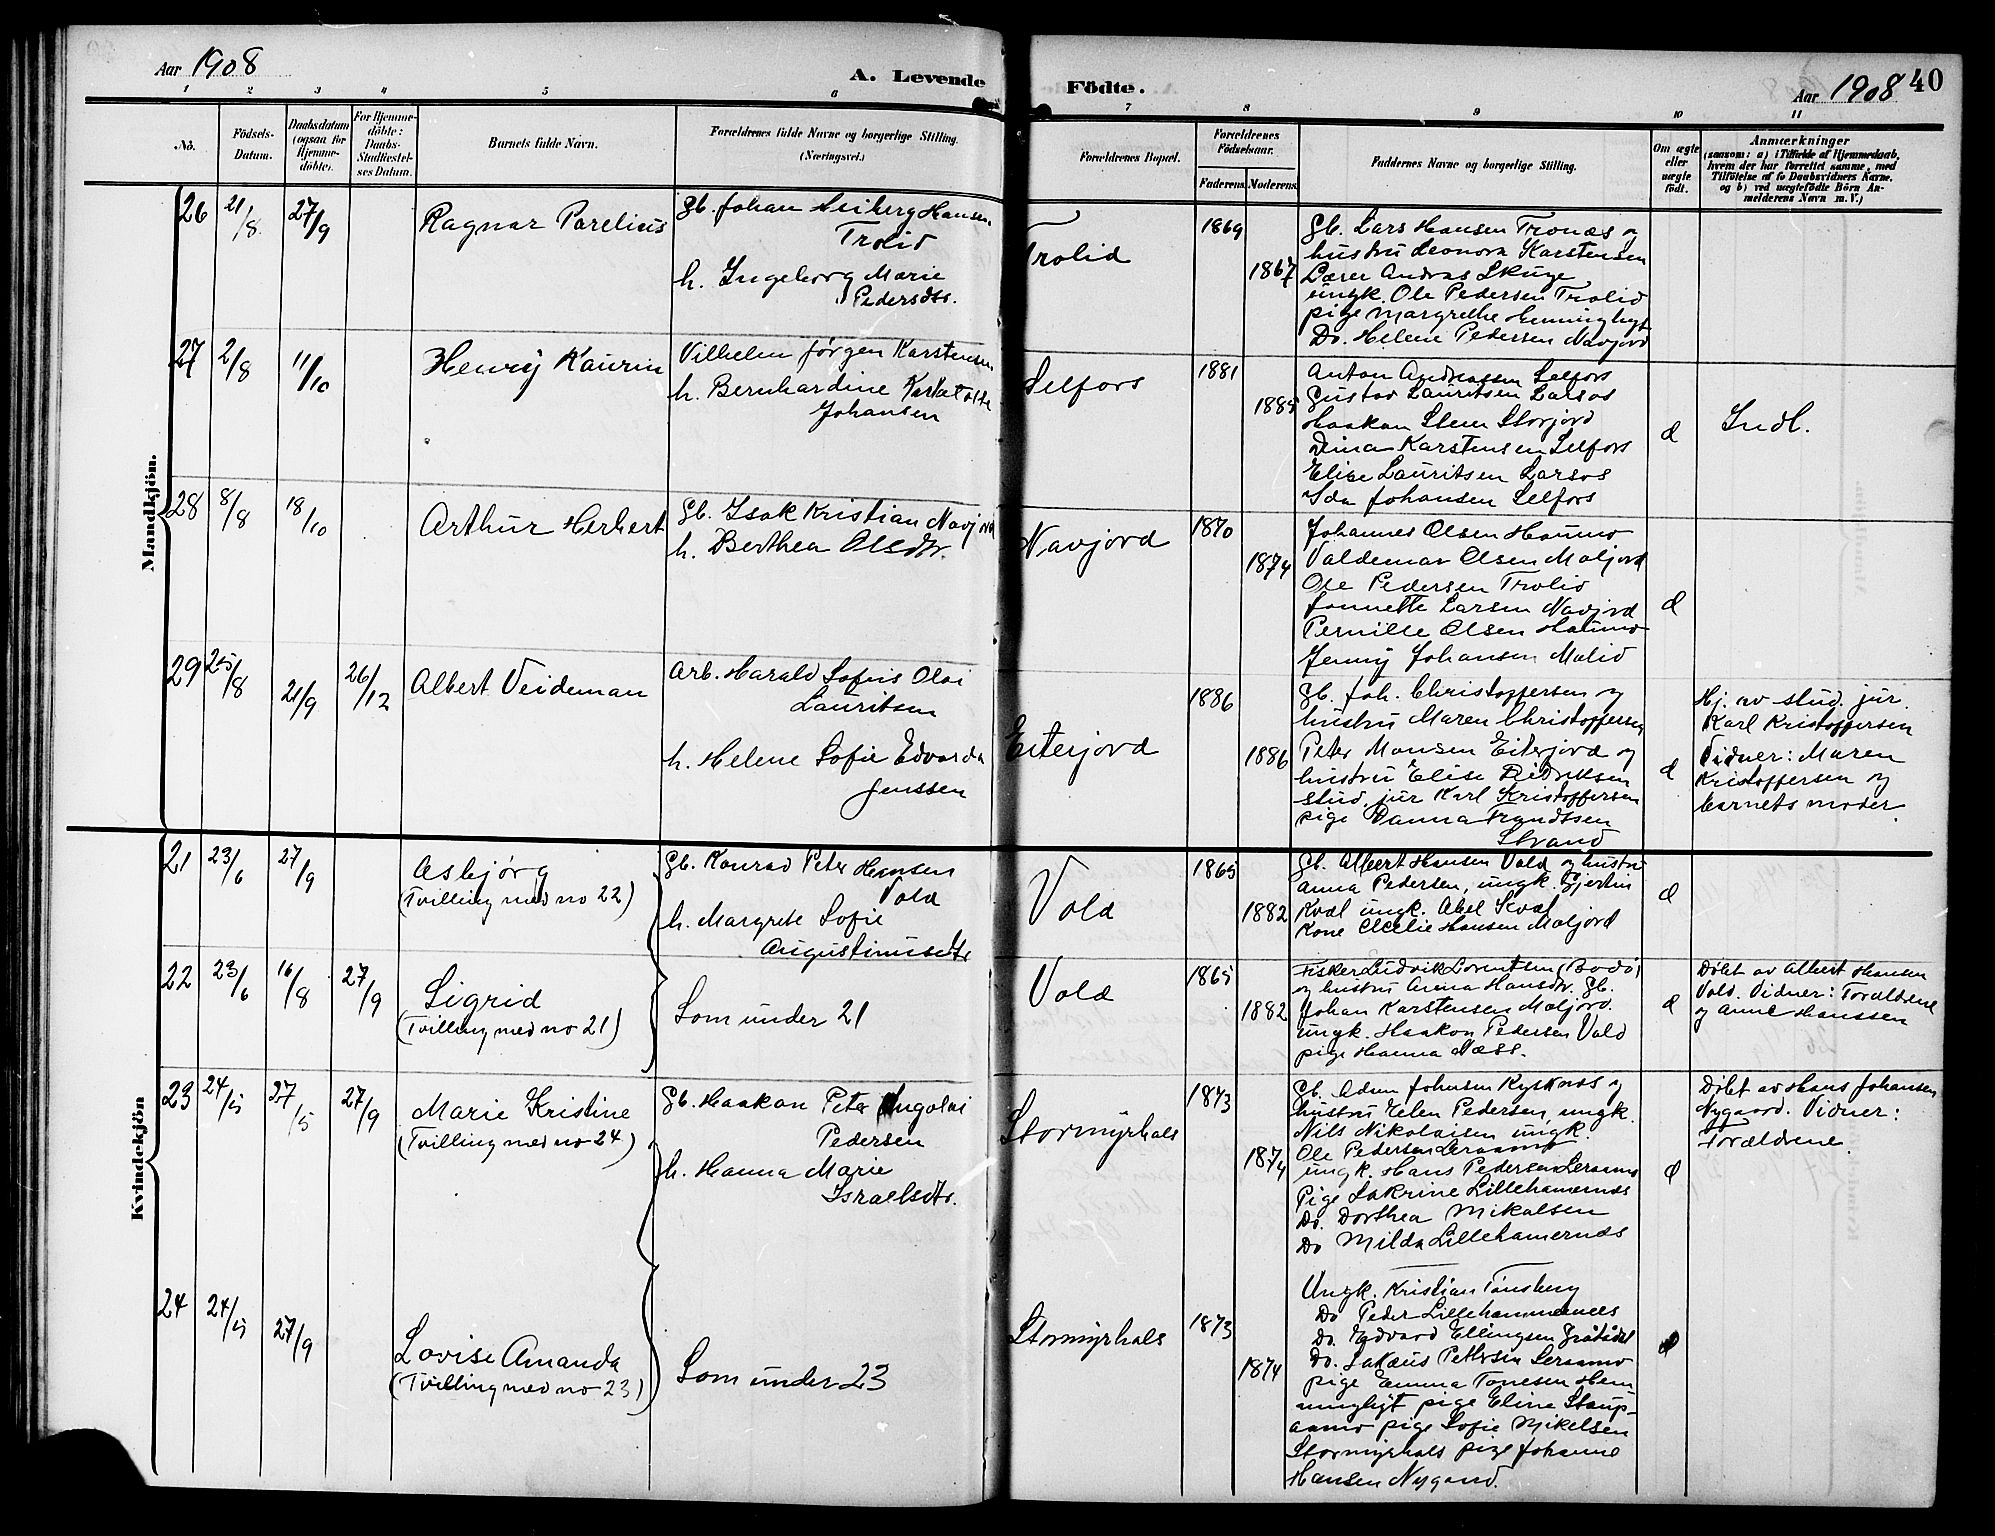 Aar 1908
A. Levende
Födte.
Aar 1908
40
1 2 3 4 5 6 7 8 9 10 11
No.
Födsels-
Datum.
Daabsdatum
(ogsaa for
Hjemme-
döbte).
For Hjemme-
döbte:
Daabs-
Stadfæstel-
ses Datum.
Barnets fulde Navn.
Forældrenes fulde Navne og borgerlige Stilling.
(Næringsvei.)
Forældrenes Bopæl.
Forældrenes
Födselsaar.
Faderens. Moderens.
Faddernes Navne og borgerlige Stilling.
Om ægte
eller
uægte
födt.
Anmærkninger
(saasom: a) i Tilfælde af Hjemmedaab,
hvem der har forrettet samme, med
Tilföielse af to Daabsvidners Navne,
og b) ved uægtefödte Börn An-
melderens Navn m. V.)
Mandkjön.
26 21/8 27/9
Ragnar Parelius
Gb. Johan Seiberg Hansen
Trolid
h. Ingeborg Marie
Pedersdtr.
Trolid
1869
1867
Gb. Lars Hansen Tronæs og
hustru Leonora Karstensen
Lærer Andras Skuge
ungk. Ole Pedersen Trolid
pige Margrethe Hemmingbyt
Do. Helene Pedersen Navjord
27 2/8 11/10
Henry Kaurin
Vilhelm Jørgen Karstensen
h. Bernhardine
Johansen
Selfors
1881
1885
Anton Andreassen Selfors
Gustav Lauritsen Larsos
Haakan Steen Storjord
Dina Karstensen Selfors
Elise Lauritsen Larsos
Ida Johansen Selfors
d
Indl.
28 8/8 18/10
Arthur Herbert
Gb. Isak Kristian Navjord
h. Berthea Olsdtr.
Navjord
1870
1874
Johannes Olsen Haumo
Valdemar Olsen Maljord
Ole Pedersen Trolid
Jonnette Larsen Navjord
Pernille Olsen Haumo
Jenny Johansen Molid
d
29 25/8 21/9 26/12
Albert Veideman
Arb. Harald Sofus Olai
Lauritsen
h. Helene Sofie Edvarda
Jenssen
Eiterjord
1886
1886
Gb. Joh. Christoffersen og
hustru Maren Christoffersen
Peter Monsen Eiterjord og
hustru Elise Didriksen
stud. jur Karl Kristoffersen
pige Danna Trondtsen
Strand
d
Hj. av stud. jur.
Karl Kristoffersen
Vidner: Maren
Kristoffersen og
barnets moder.
Kvindekjön
21 23/6 27/9
Asbjørg
(Tvilling med no 22)
Gb. Konrad Peter Hansen
Vold
h. Margrete Sofie
Augustinusdtr
Vold
1865
1882
Gb. Albert Hansen Vold og hustru
Anna Pedersen, ungk. Gjertin
Kvæl ungk. Abel Kvæl
Kone Cecelie Hansen Maljord
d
22 23/6 16/8 27/9
Sigrid
(Tvilling med no 21)
Som under 21
Vold
1865
1882
Fisker Ludvik Lorentsen (Bodø)
og hustru Anna Hansdtr. Gb.
Johan Karstensen Maljord.
ungk. Haakon Pedersen Vold
pige Hanna Næss.
d
Døbt av Albert Hansen
Vold. Vidner: Forældrene
og Anne Hanssen
23 24/5 27/5 27/9
Marie Kristine
(Tvilling med no 24)
Gb. Haakon Peter Angolai
Pedersen
h. Hanna Marie
Israelsdtr.
Stormyrhals
1873
1874
Gb. Adam Johnsen Rysknæs og
hustru Elen Pedersen, ungk.
Nils Nikolaisen ungk.
Ole Pedersen Leraamo
ungk. Hans Pedersen Leraamo
Pige Sakrine Lillehamernæs
Do. Dorthea Mikalsen
Do Milda Lillehamernæs
d
Døbt av Hans Johansen
Nygaard. Vidner:
Forældrene.
24 24/5 27/9
Lovise Amanda
(Tvilling med no 23)
Som under 23
Stormyrhals
1873
1874
Ungk. Kristian Tønsberg
Do Peder Lillehammernes
Do. Edvard Ellingsen Gråtådal
Do. Sakæus Pettersen Leraamo
pige Emma Tonesen Hem
mingbyt pige Eline Staup-
aamo pige Sofie Mikelsen
Stormyrhals pige Johanne
Hansen Nygaard.
d